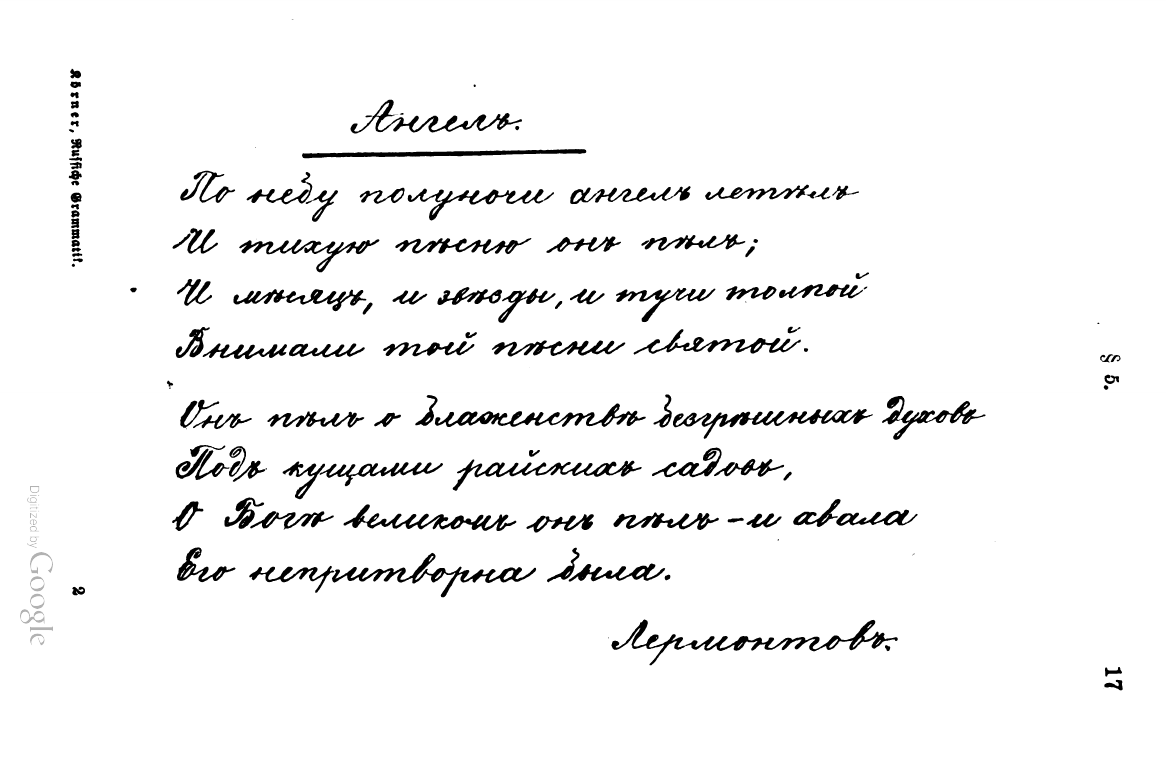 Ангелъ.
По небу полуночи ангелъ летѣлъ
И тихую пѣсню онъ пѣлъ;
И мѣсяцъ, и звѣзды, и тучи толпой
Внимали той пѣсни святой.
Онъ пѣлъ о блаженствѣ безгрѣшныхъ духовъ
Подъ кущами райскихъ садовъ,
О Богѣ великомъ онъ пѣлъ – и хвала
Его непритворна была.
Лермонтовъ.
Körner, Russische Grammatik.
2
§ 5.
17
Digitized by Google